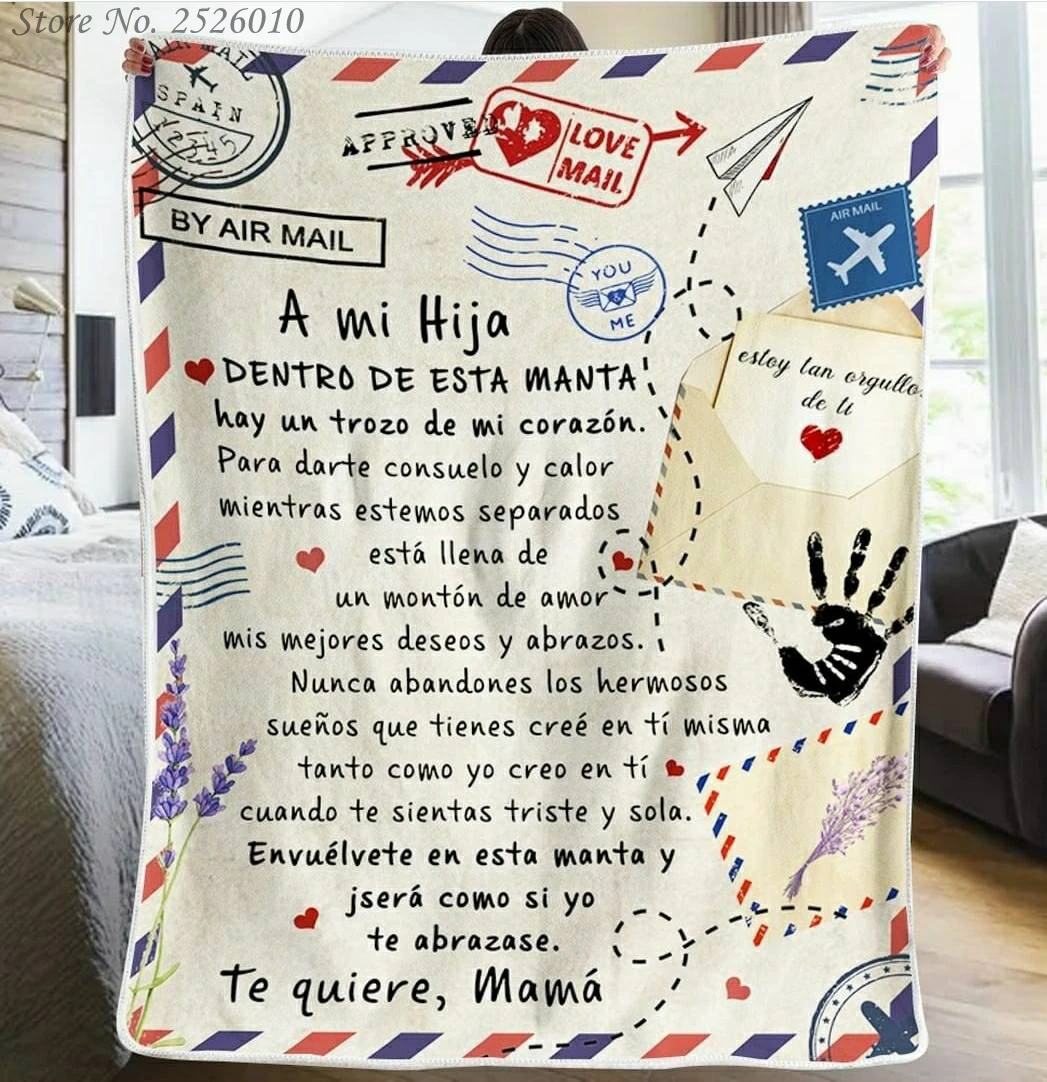 Store No. 2526010
AIR MAIL
SPAIN
12345
APPROVED
LOVE
MAIL
BY AIR MAIL
AIR MAIL
YOU
ME
A mi Hija
DENTRO DE ESTA MANTA
hay un trozo de mi corazón.
Para darte consuelo y calor
mientras estemos separados
está llena de
un montón de amor
mis mejores deseos y abrazos.
Nunca abandones los hermosos
sueños que tienes creé en tí misma
tanto como yo creo en tí
cuando te sientas triste y sola.
Envuélvete en esta manta y
jserá como si yo
te abrazase.
Te quiere, Mamá
estoy tan orgullo
de ti